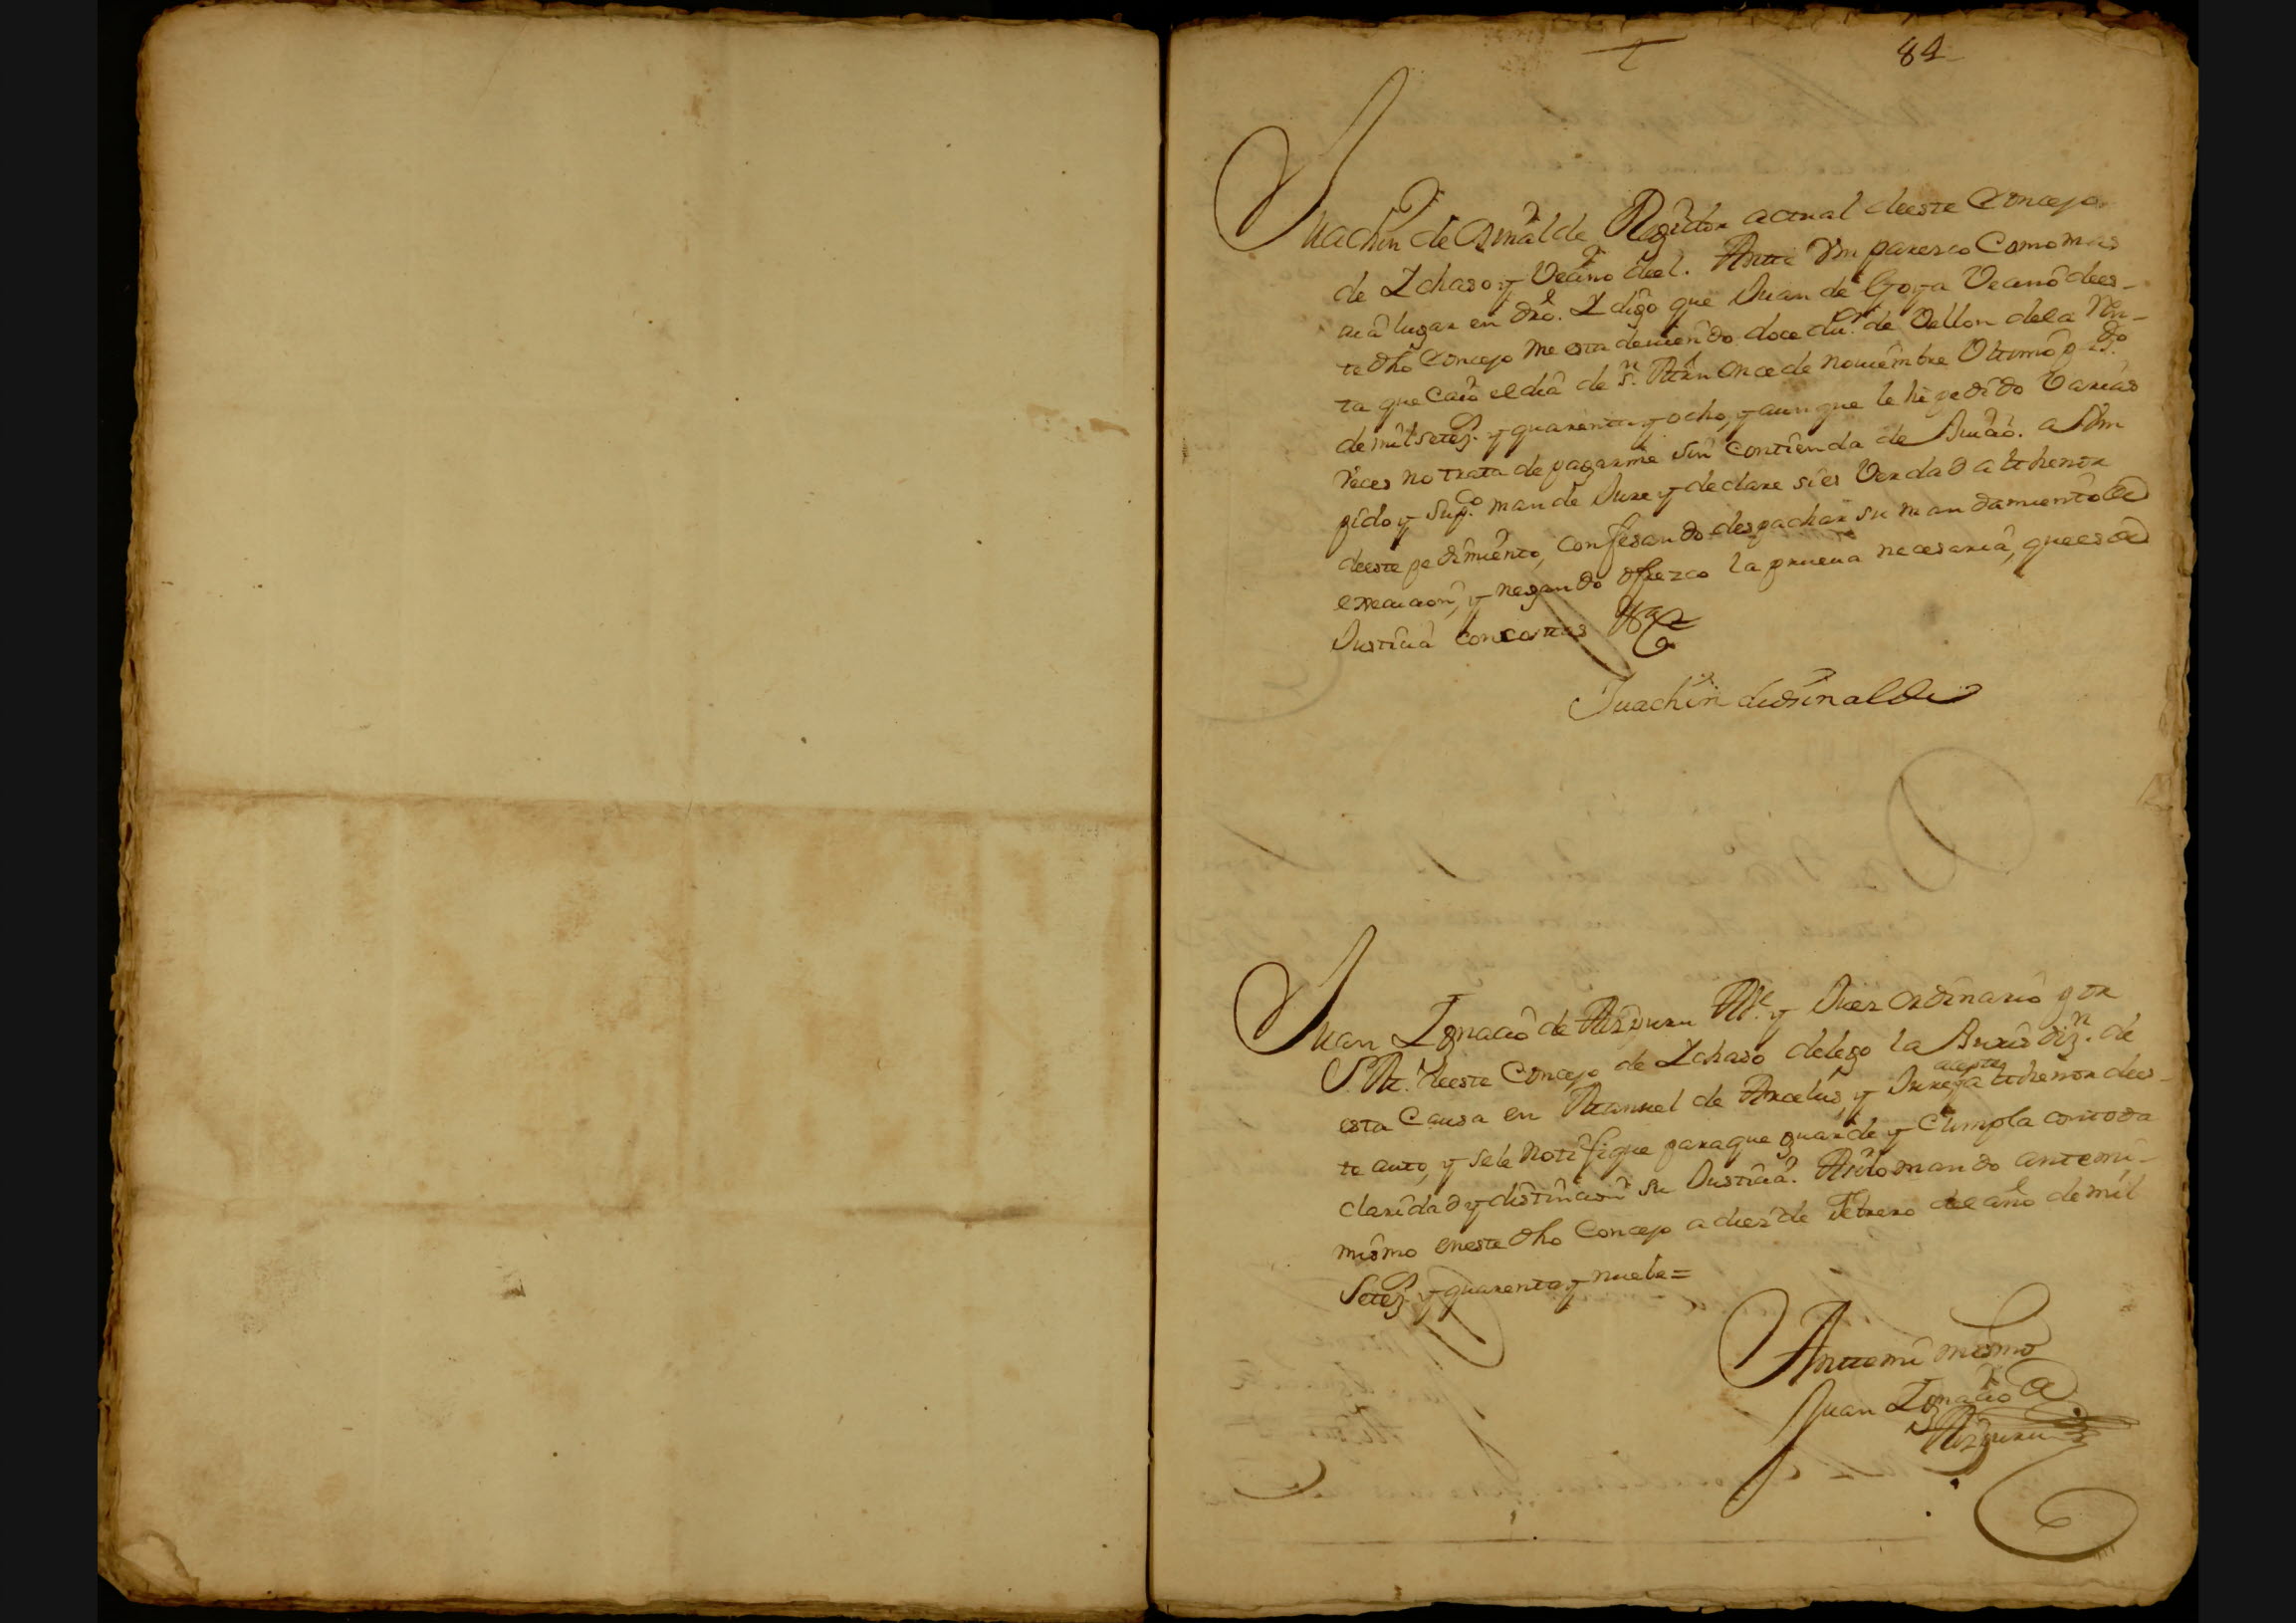 84
Juachin de Osinalde Regidor actual deeste Concejo
de Ichaso y Vecino deel. Ante Vm paresco Como mas
aia lugar en dro. I digo que Juan de Goya Vecino dees-
te dho Concejo me esta deuiendo doce du.s de Vellon dela Ren-
ta que Caio el dia de S.n Mrn once de Nouiembre Vltimo p.do
de mil setez.s y quarenta y ocho, y aunque le he pedido Varias
veces no trata de pagarme sin Contienda de Juicio. a Vm
pido y Sup.co mande Jure y declare si es Verdad al thenor
deeste pedimiento, confesando despachar su mandamiento de
execucion, y negando ofrezco la prueua necesaria, que es de
Justicia con costas &a
Juachin de Osinalde
Juan Ignacio de Aizpuru Al.e y Juez ordinario por
S. M. deeste Concejo de Ichaso delego la Jurisdiz.n de
esta Causa en Manuel de Arcelus, y acepte
Jure al thenor dees-
te auto, y sele notifique paraque guarde y Cumpla contoda
claridad y distincion su Justicia. Asilo mando antemi-
mismo eneste dho Concejo a diez de Febrero del año de mil
Setez.s y quarenta y nuebe=
Antemi mismo
Juan Ignacio de
Aizpuru